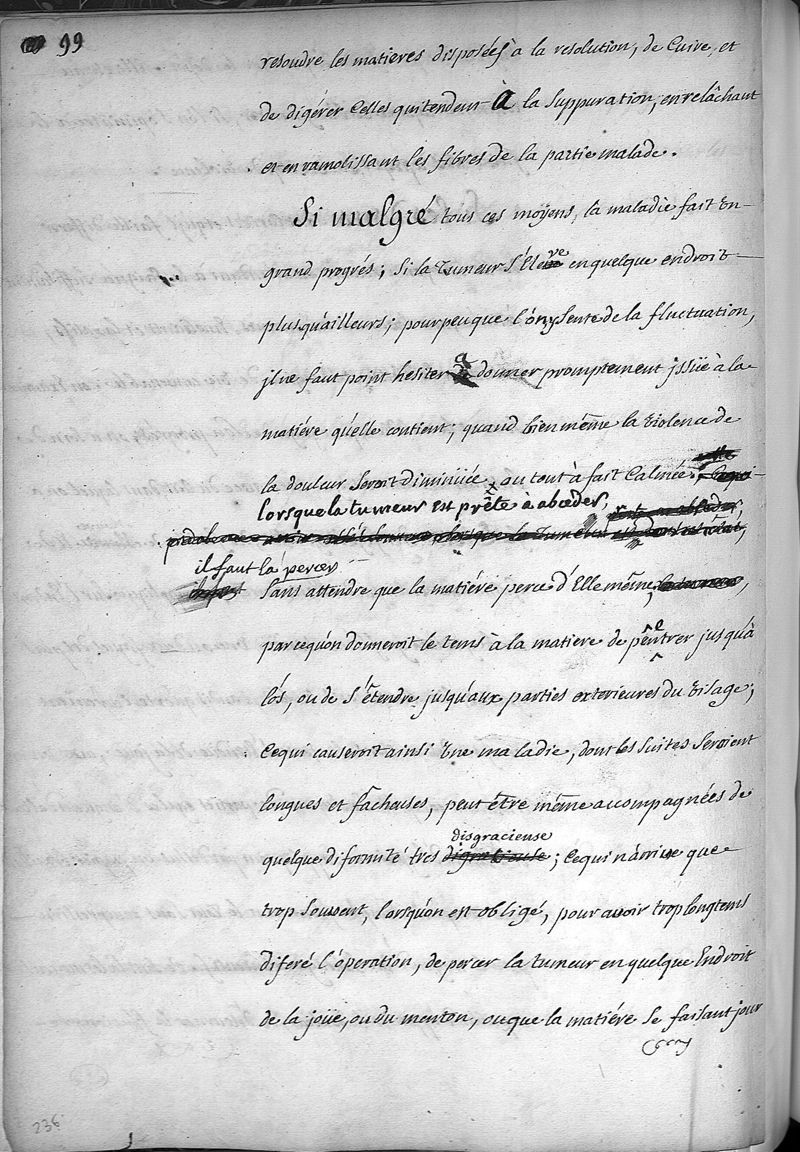 99
resoudre les matieres disposées à la resolution, de Cuire, et
de digérer Celles qui tendent À la Suppuration, en relâchant
et en ramolissant les fibres de la partie malade.
Si malgré tous ces moÿens, la maladie fait un
grand progrés; Si la tumeur s'Eleve en quelque endroit
plusqu'ailleurs; pourpeuque l'on y sente de la fluctuation,
il ne faut point hesiter a donner promptement jssüe à la
matiére qu'elle contient; quand bien même la violence de
la douleur Seroit diminüée, ou tout à fait Calmée.
lorsque la tumeur est prête à abceder,
il faut la percer
Sans attendre que la matiére perce d'Elle même,
parcequ'on donneroit le tems à la matiere de penetrer jusqu'à
l'os, ou de s'étendre jusqu'aux parties exterieures du visage;
Cequi causeroit ainsi Une maladie, dont les Suites Seroient
longues et facheuses, peut être même accompagnées de
disgracieuse
quelque diformité tres ; Cequi n'arrive que
trop Souvent, lorsqu'on est obligé, pour avoir trop longtems
diferé l'óperation, de percer la tumeur en quelque Endroit
de la joüe, ou du menton, ou que la matiére se faisant jour
236